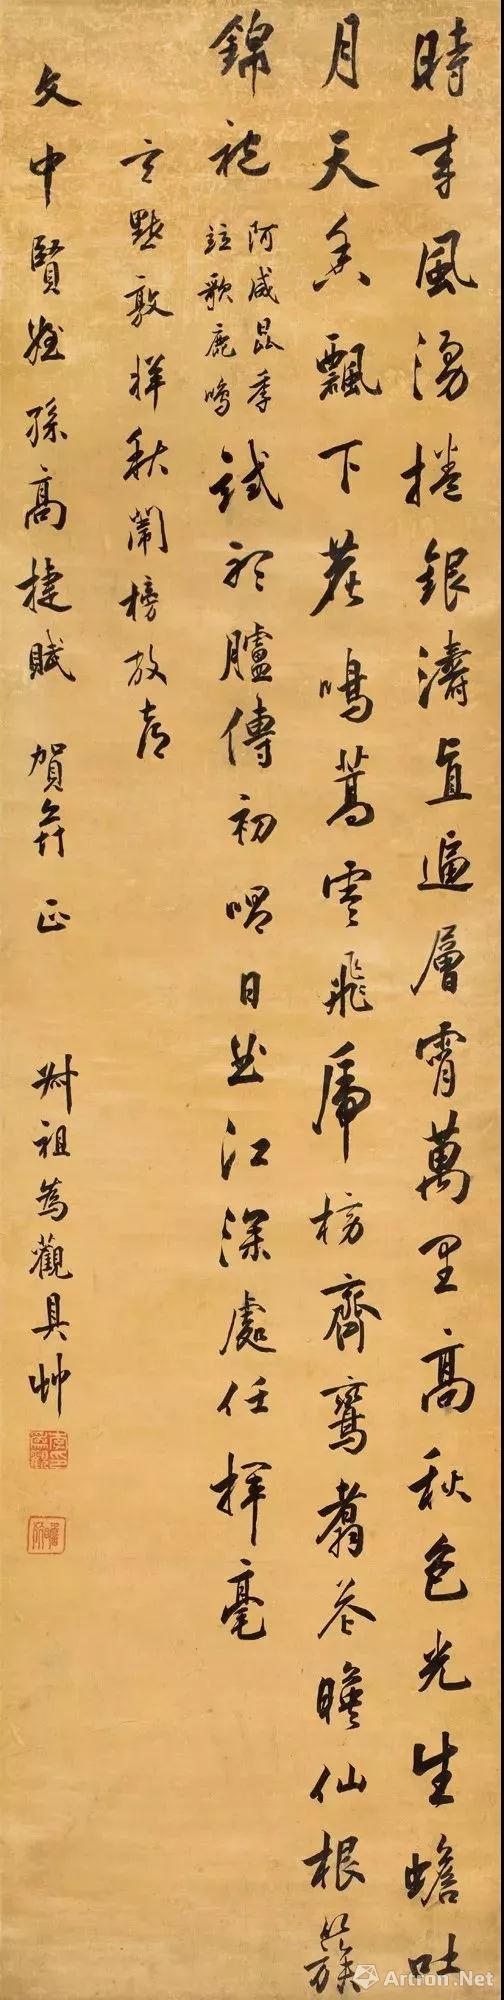 時来風湧捲銀濤直遍層霄萬里高秋色光生蟾吐
月天香飄下鹿鳴蒿雲飛虎榜齊鸞翥花暎仙根簇
錦袍
阿咸昆季
竝歌鹿鳴
試聽臚傳初唱日曲江深處任揮毫
言點敦牂秋闈榜放喜
文中賢姪孫高捷賦 賀并正
叔祖為觀具艸
Artron.Net